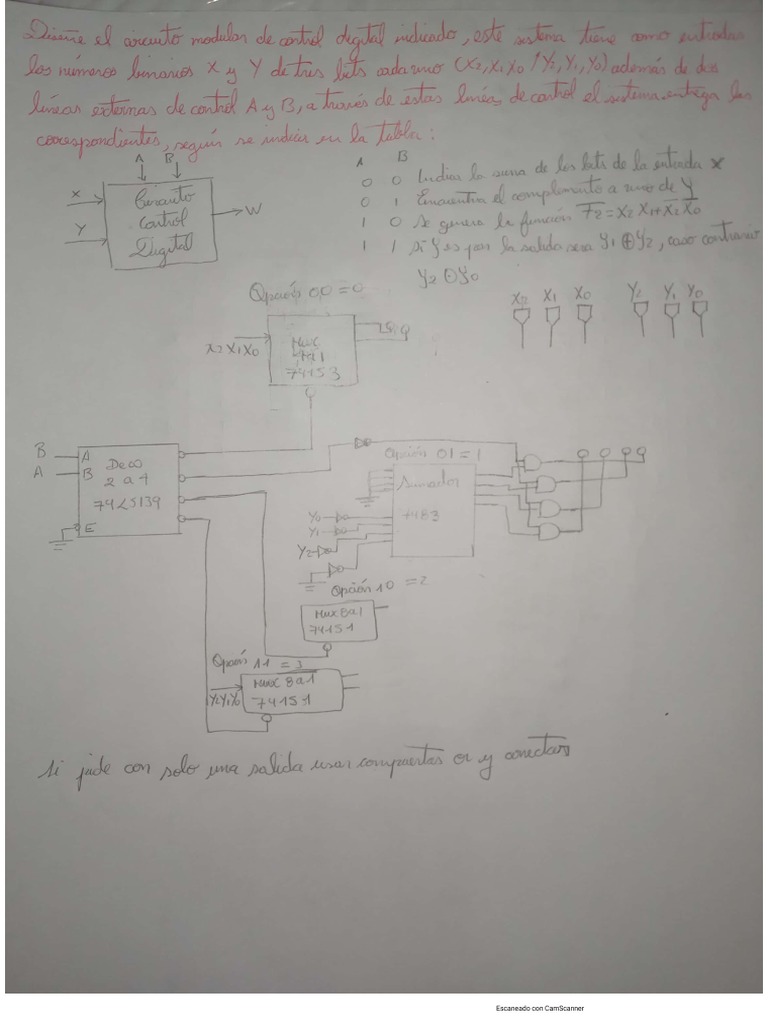 Diseñe el circuito modular de control digital indicado, este sistema tiene como entradas
los números binarios X y Y de tres bits cada uno (X2, X1 X0 / Y2, Y1, Y0) además de dos
líneas externas de control A y B, a través de estas líneas de control el sistema entrega las
correspondientes, según se indica en la tabla:
A B
X
Y
Circuito
Control
Digital
W
A B
0 0 Indica la suma de los bits de la entrada X
0 1 Encuentra el complemento a uno de Y
1 0 Se genera la función F2 = X2 X1 + X2 X0
1 1 Si Y es par la salida sera Y1 ⊕ Y2, caso contrario
Y2 ⊙ Y0
Opción 00 = 0
X2 X1 X0
Mux
4 a 1
74153
X2 X1 X0 Y2 Y1 Y0
B
A
A
B
E
Deco
2 a 4
74LS139
Opción 01 = 1
Sumador
7483
Y0
Y1
Y2
Opción 10 = 2
Mux 8 a 1
74151
Opción 11 = 3
Y2 Y1 Y0
Mux 8 a 1
74151
Si pide con solo una salida usar compuertas or y conectar
Escaneado con CamScanner